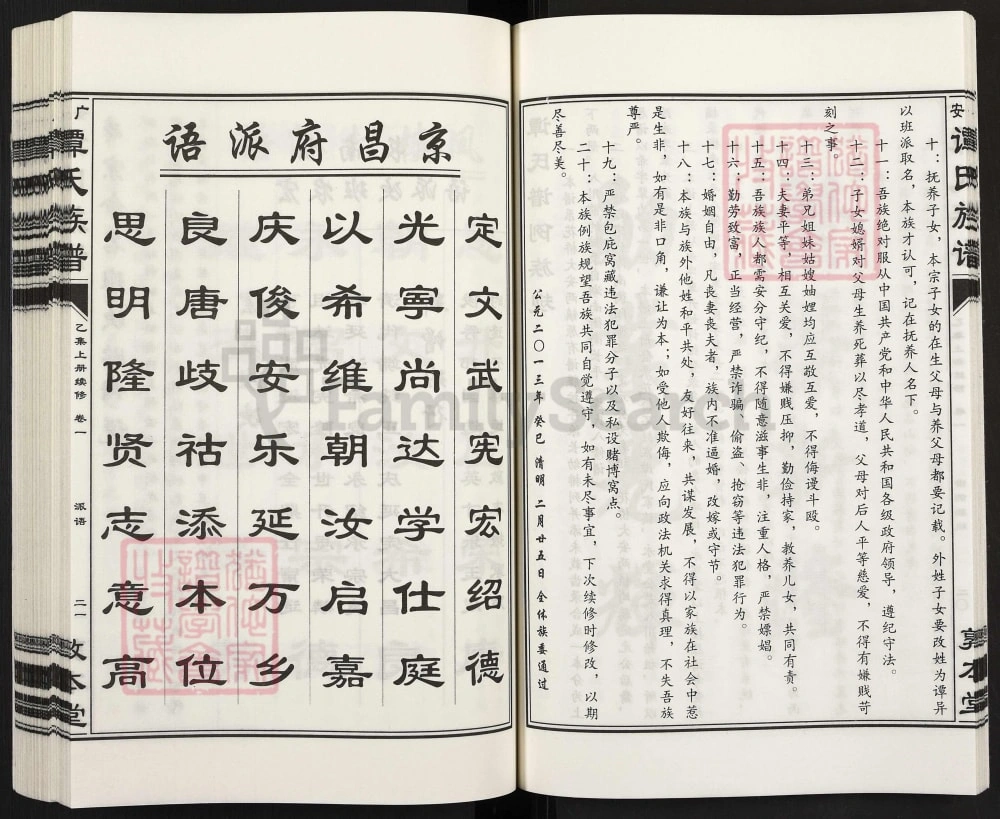 安
谭氏族谱
敦本堂
十：抚养子女，本宗子女的在生父母与养父母都要记载。外姓子女要改姓为谭异
以班派取名，本族才认可，记在抚养人名下。
十一：吾族绝对服从中国共产党和中华人民共和国各级政府领导，遵纪守法。
十二：子女媳婿对父母生养死葬以尽孝道，父母对后人平等慈爱，不得有嫌贱苛
刻之事。
十三：弟兄姐妹姑嫂妯娌均应互敬互爱，不得侮谩斗殴。
十四：夫妻平等，相互关爱，不得嫌贱压抑，勤俭持家，教养儿女，共同有责。
十五：吾族族人都需安分守纪，不得随意滋事生非，注重人格，严禁嫖娼。
十六：勤劳致富，正当经营，严禁诈骗、偷盗、抢窃等违法犯罪行为。
十七：婚姻自由，凡丧妻丧夫者，族内不准逼婚，改嫁或守节。
十八：本族与族外他姓和平共处，友好往来，共谋发展，不得以家族在社会中惹
是生非，如有是非口角，谦让为本；如受他人欺侮，应向政法机关求得真理，不失吾族
尊严。
十九：严禁包庇窝藏违法犯罪分子以及私设赌博窝点。
二十：本族例族规望吾族共同自觉遵守，如有未尽事宜，下次续修时修改，以期
尽善尽美。
公元二〇一三年 癸巳 清明 二月廿五日 全体族委通过
语派府昌京
定文武宪宏绍德
光宁尚达学仕庭
以希维朝汝启嘉
庆俊安乐延万乡
良唐歧祜添本位
思明隆贤志意高
广
谭氏族谱
乙集上册续修 卷一
派语
二一
敦本堂
FamilySearch